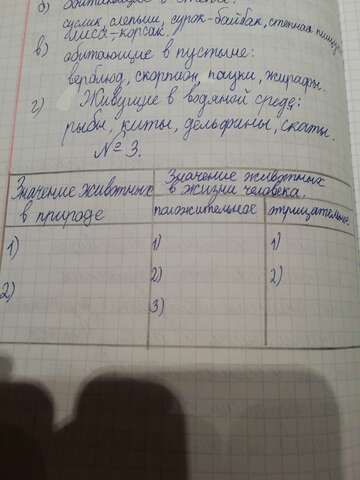 б) обитающие в степи:
суслик, слепыш, сурок-байбак, степная пищуха
лиса-корсак.
в) обитающие в пустыне:
верблюд, скорпион, пауки, жирафы.
г) Живущие в водяной среде:
рыбы, киты, дельфины, скаты.
№ 3.
Значение животных
в природе
Значение животных
в жизни человека.
положительное
отрицательное
1)
2)
1)
2)
3)
1)
2)